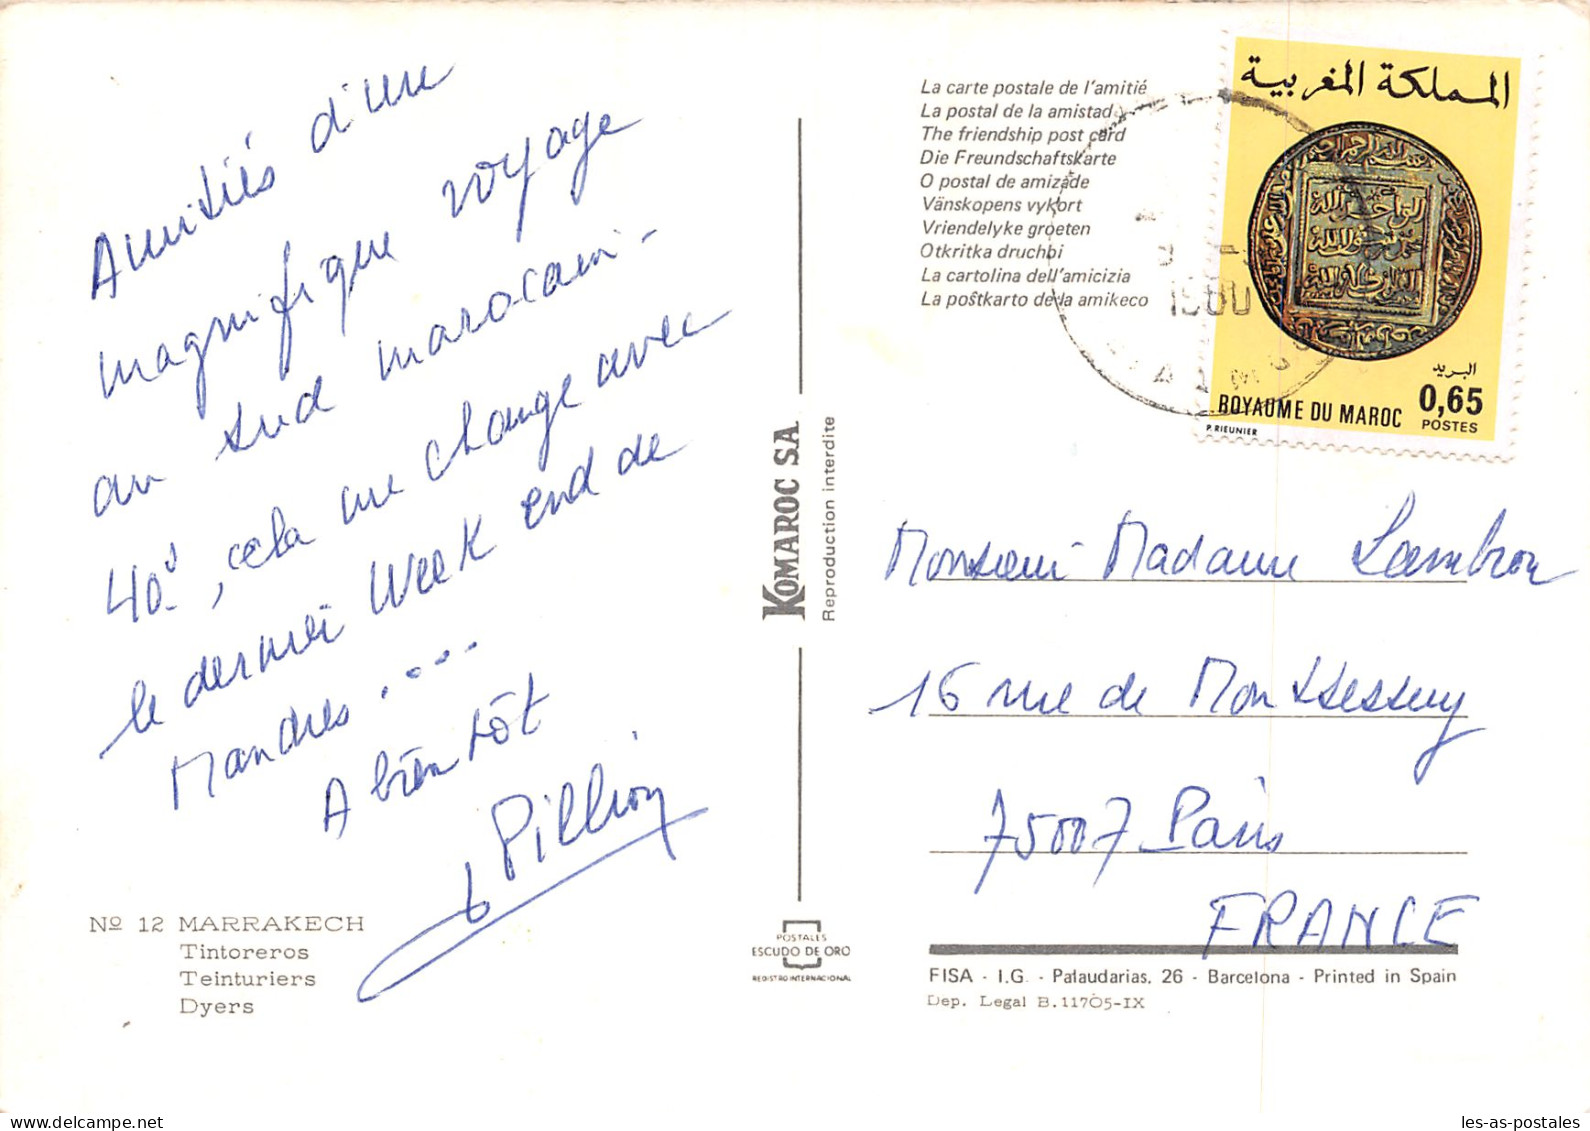 Amitiés d'un
magnifique voyage
au sud marocain -
40°, cela me change avec
le dernier Week end de
Mandres ....
A bientôt
No 12 MARRAKECH
Tintoreros
Teinturiers
Dyers
KOMAROC SA
Reproduction interdite
POSTALES
ESCUDO DE ORO
REGISTRO INTERNACIONAL
La carte postale de l'amitié
La postal de la amistad
The friendship post card
Die Freundschaftskarte
O postal de amizade
Vänskopens vykort
Vriendelyke groeten
Otkritka druchbi
La cartolina dell'amicizia
La poŝtkarto de la amikeco
المملكة المغربية
البريد
0,65
ROYAUME DU MAROC
POSTES
P. RIEUNIER
Monsieur Madame Lambron
16 rue de Monttessuy
75007 Paris
FRANCE
FISA - I.G. - Palaudarias, 26 - Barcelona - Printed in Spain
Dep. Legal B.11705-IX
les-as-postales